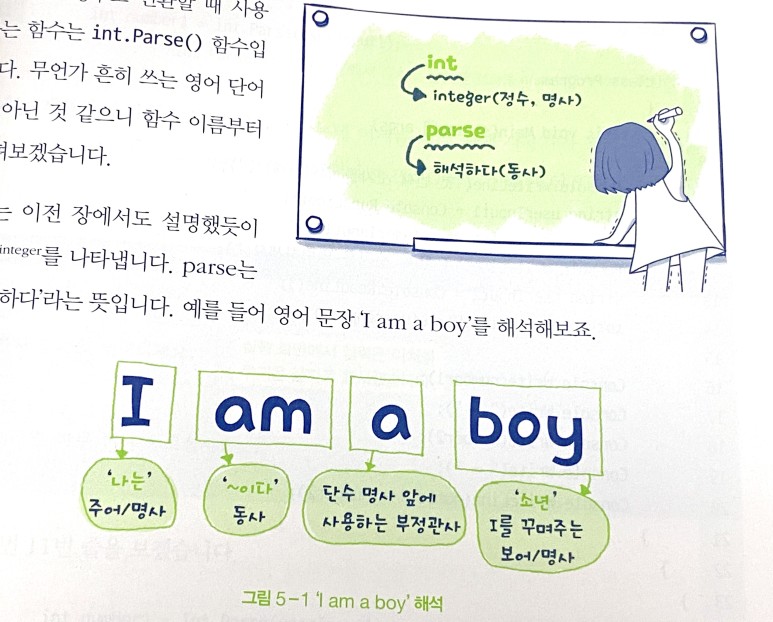 전환할 때 사용
는 함수는 int.Parse() 함수입
다. 무언가 흔히 쓰는 영어 단어
아닌 것 같으니 함수 이름부터
보겠습니다.
는 이전 장에서도 설명했듯이
integer를 나타냅니다. parse는
하다'라는 뜻입니다. 예를 들어 영어 문장 'I am a boy'를 해석해보죠.
int
integer(정수, 명사)
parse
해석하다(동사)
I am a boy
'나는'
주어/명사
'~이다'
동사
단수 명사 앞에
사용하는 부정관사
'소년'
I를 꾸며주는
보어/명사
그림 5-1 'I am a boy' 해석